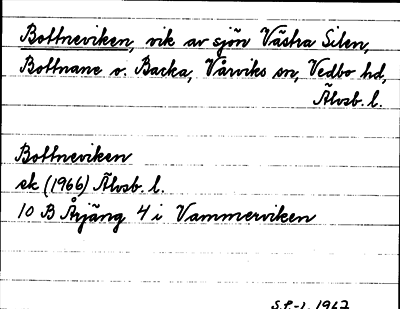 Bottneviken, vik av sjön Västra Silen,
Bottnane o. Backa, Vårviks sn, Vedbo hd,
Älvsb. l.
Bottneviken
ek (1966) Älvsb. l.
10 B Årjäng 4 i Vammerviken
1967